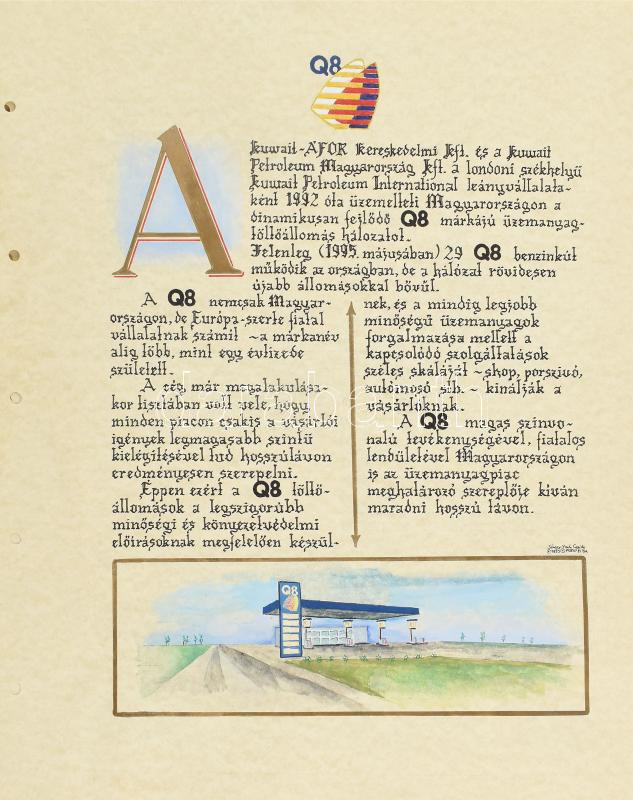 Q8
A
Kuwait-ÁFOR Kereskedelmi Kft. és a Kuwait
Petroleum Magyarország Kft. a londoni székhelyű
Kuwait Petroleum International leányvállalata-
ként 1992 óta üzemelteti Magyarországon a
dinamikusan fejlődő Q8 márkájú üzemanyag-
töltőállomás hálózatot.
Jelenleg (1995. májusában) 29 Q8 benzinkút
működik az országban, de a hálózat rövidesen
újabb állomásokkal bővül.
A Q8 nemcsak Magyar-
országon, de Európa-szerte fiatal
vállalatnak számít - a márkanév
alig több, mint egy évtizede
született.
A cég, már megalakulása-
kor tisztában volt vele, hogy
minden piacon csakis a vásárlói
igények legmagasabb szintű
kielégítésével tud hosszú távon
eredményesen szerepelni.
Éppen ezért a Q8 töltő-
állomások a legszigorúbb
minőségi és környezetvédelmi
előírásoknak megfelelően készül-
nek, és a mindig legjobb
minőségű üzemanyagok
forgalmazása mellett a
kapcsolódó szolgáltatások
széles skáláját - shop, porszívó,
autómosó stb. - kínálják a
vásárlóknak.
A Q8 magas színvo-
nalú tevékenységével, fiatalos
lendületével Magyarországon
is az üzemanyagpiac
meghatározó szereplője kíván
maradni hosszú távon.
Q8